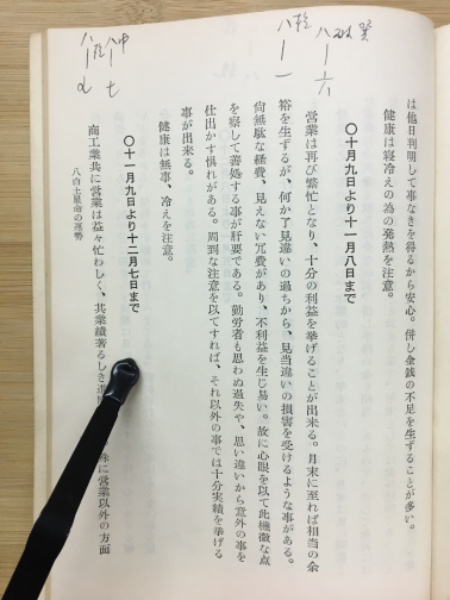 は他日判明して事なきを得るから安心。併し金銭の不足を生ずることが多い。
健康は寝冷えの為の発熱を注意。
〇十月九日より十一月八日まで
営業は再び繁忙となり、十分の利益を挙げることが出来る。月末に至れば相当の余
裕を生ずるが、何か了見違いの過ちから、見当違いの損害を受けるような事がある。
尚無駄な経費、見えない冗費があり、不利益を生じ易い。故に心眼を以て此機微な点
を察して善処する事が肝要である。勤労者も思わぬ過失や、思い違いから意外の事を
仕出かす惧れがある。周到な注意を以てすれば、それ以外の事では十分実績を挙げる
事が出来る。
健康は無事、冷えを注意。
〇十一月九日より十二月七日まで
商工業共に営業は益々忙わしく、其業績著るしき
殊に営業以外の方面
八白土星命の運勢
八
一
八
六
八
八中
七